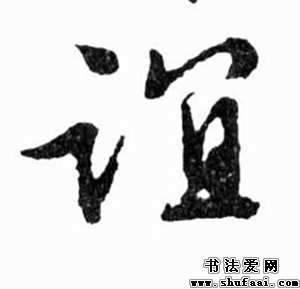 谊
书法爱网
www.shufaai.com